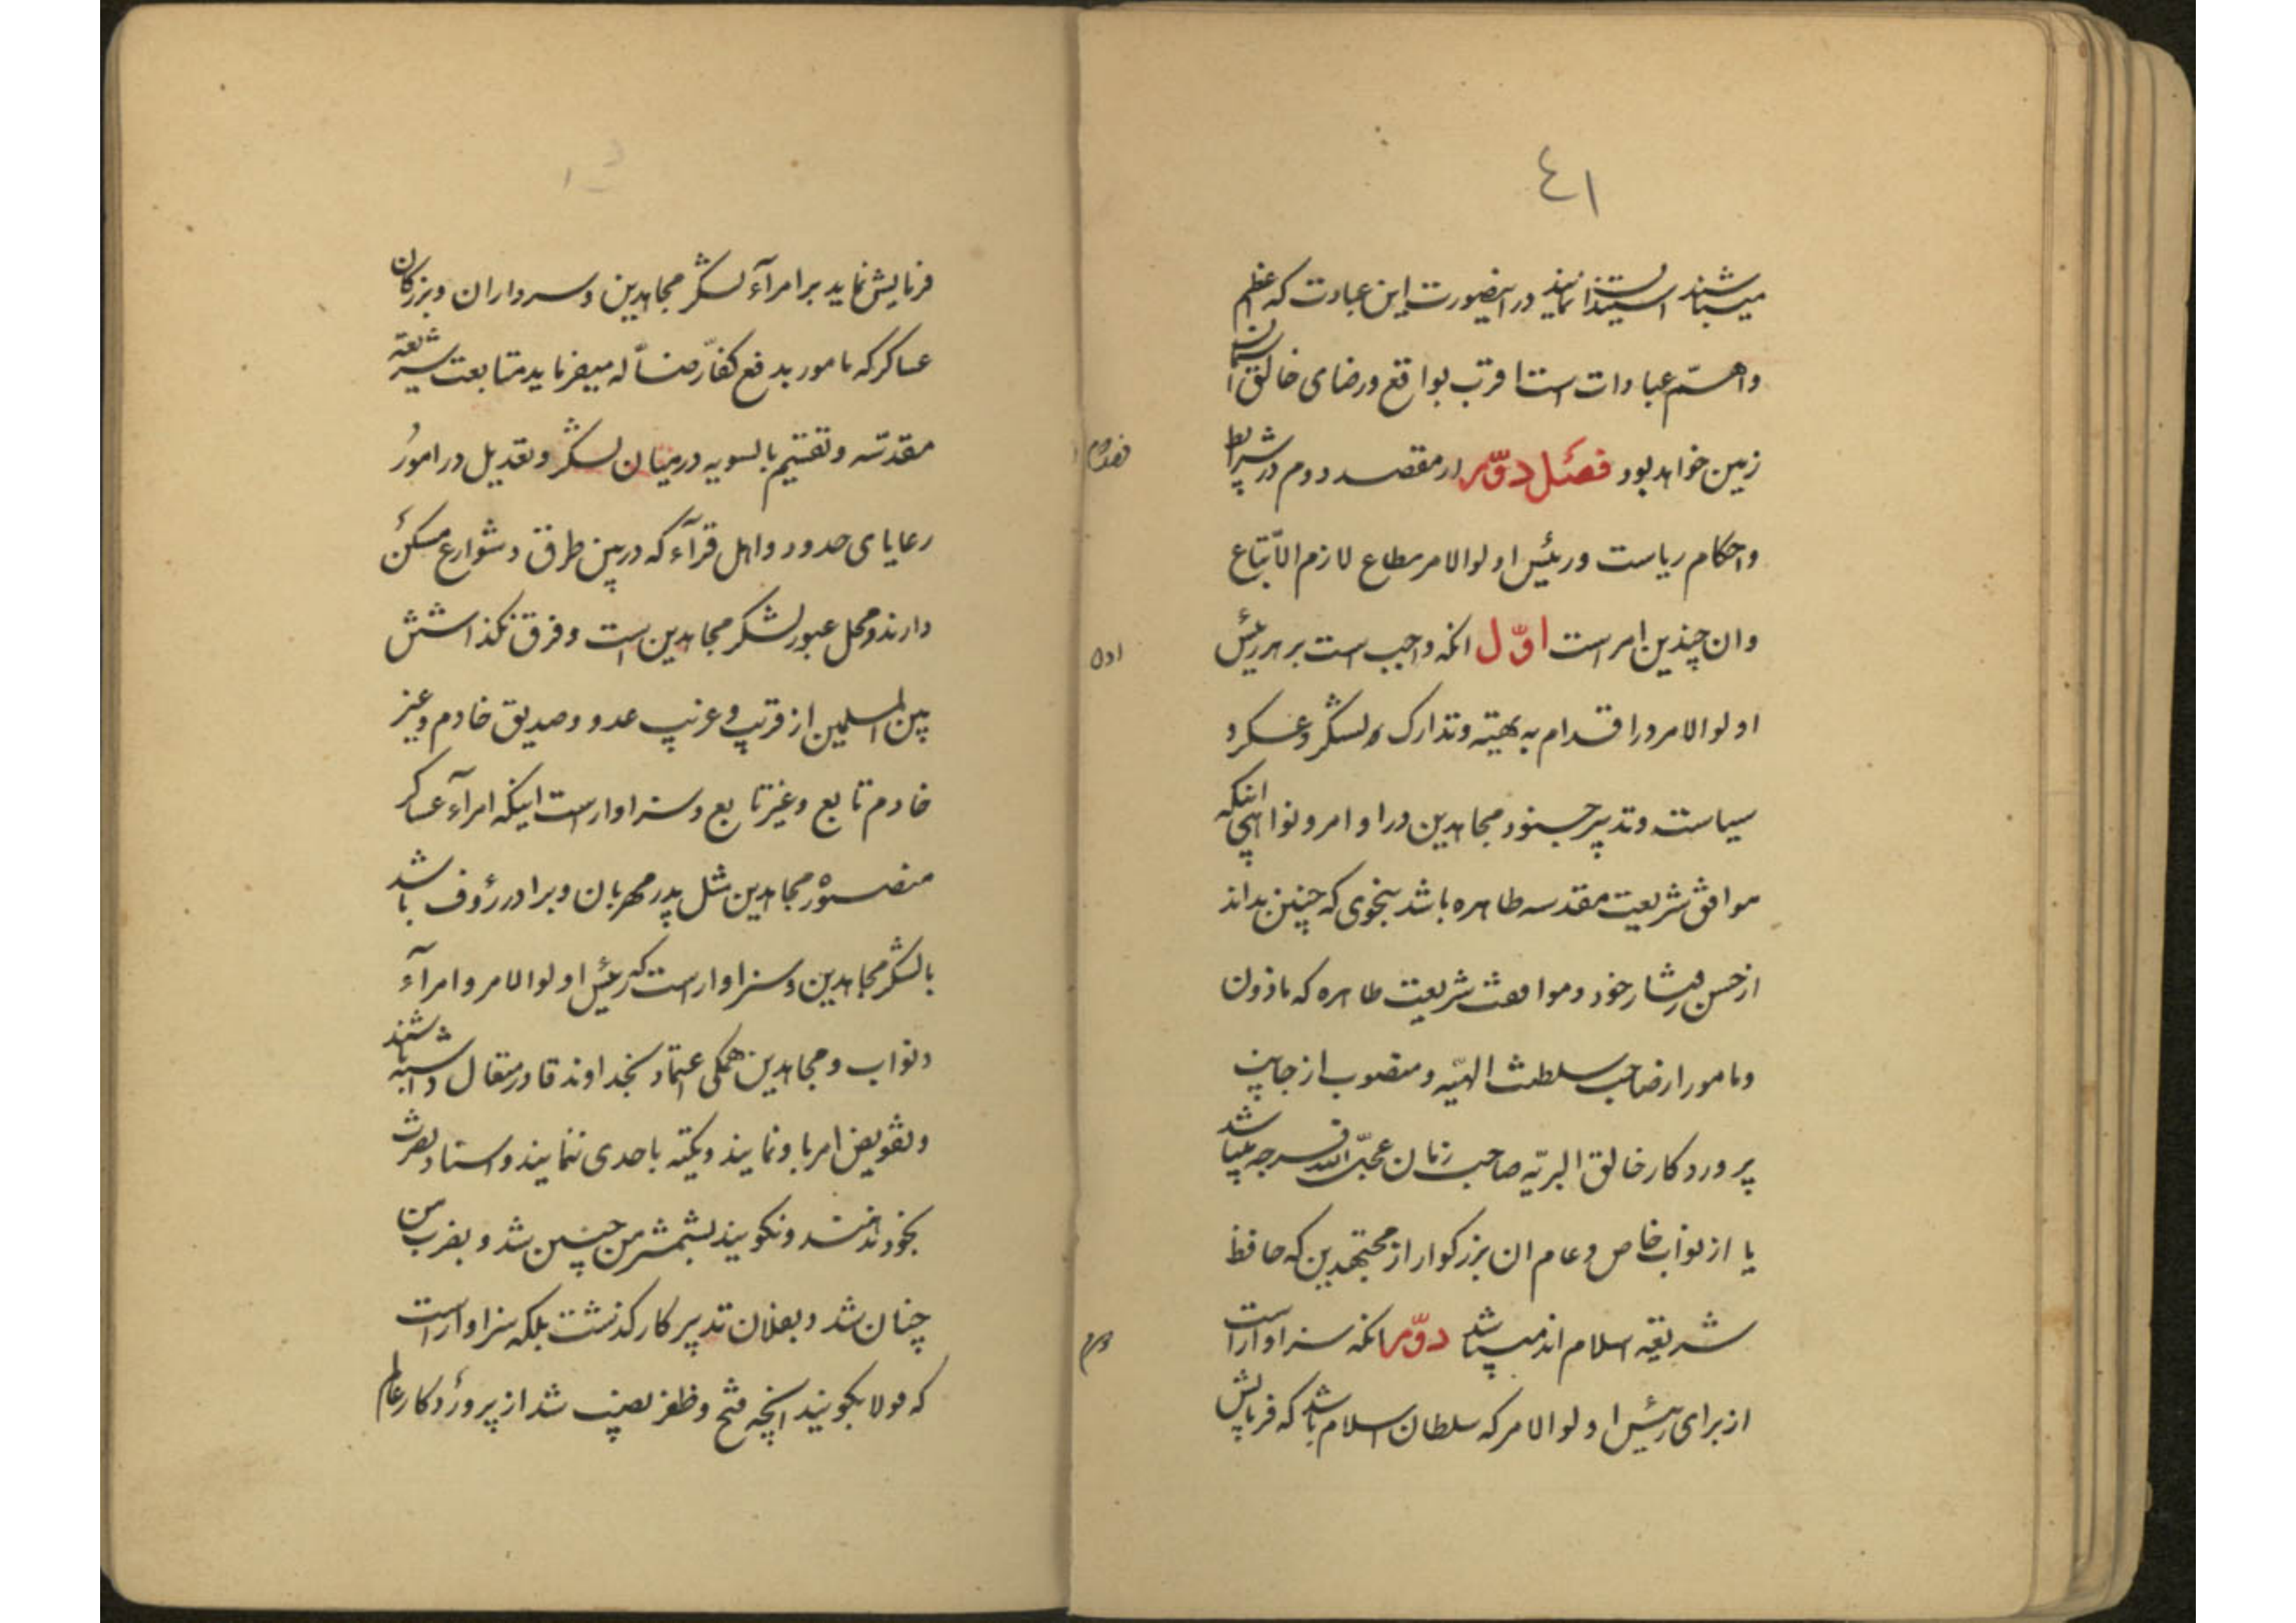 ٤١
میباشند استیذان نمایند در اینصورت این عبادت که اعظم
واهمّ عبادات است اقرب بواقع ورضای خالق
زمین خواهد بود فصل دوّم از مقصد دوم در شرایط
واحکام ریاست ورئیس اولوالامر مطاع لازم الاتّباع
وان چندین امر است اوّل انکه واجب است بر هر رئیس
اولوالامر در اقدام به تهیّه وتدارک ولشگر وعسکر و
سیاست وتدبیر جنود مجاهدین در اوامر ونواهی اینکه
موافق شریعت مقدسه طاهره باشد بنحوی که چنین بداند
از حسن رفتار خود وموافقت شریعت طاهره که ماذون
ومامور از صاحب سلطنت الهیّه ومنصوب از جانب
پروردکار خالق البریّه صاحب زمان عجّل الله فرجه میباشد
یا از نواب خاص وعام ان بزرکوار از مجتهدین که حافظ
شریعه اسلام اند میباشد دوّم انکه سزاوار است
از برای رئیس اولوالامر که سلطان اسلام باشد که فرمایش
فصل دوم
اول
دوم
فرمایش نماید بر امرآء لشگر مجاهدین وسرداران وبزرکان
عساکر که مامور بدفع کفّار ضالّه میفرماید متابعت شریعة
مقدّسه وتقسیم بالسویه در میان لشگر وتعدیل در امور
رعایای حدود واهل قرآء که در بین طرق وشوارع مسکن
دارند ومحل عبور لشگر مجاهدین است وفرق نکذاشتن
بین المسلمین از قریب وغریب عدو وصدیق خادم وغیر
خادم تابع وغیر تابع وسزاوار است اینکه امرآء عساکر
منصوره مجاهدین مثل پدر مهربان وبرادر رؤف باشد
با لشگر مجاهدین وسزاوار است که رئیس اولوالامر وامرآء
ونواب ومجاهدین همکی اعتماد بخداوند قادر متعال داشته باشند
وتفویض امر باو نمایند وتکیه باحدی ننمایند واسناد نصرت
بخود ندهند ونکویند بشمشیر من چنین شد وبضرب من
چنان شد وبفلان تدبیر کار کذشت بلکه سزاوار است
که قولا بکویند انچه فتح وظفر نصیب شد از پروردکار عالم